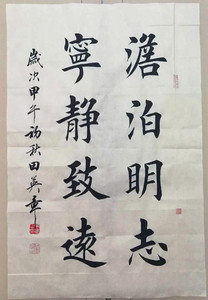 澹泊明志
寧静致遠
歲次甲午初秋田英章